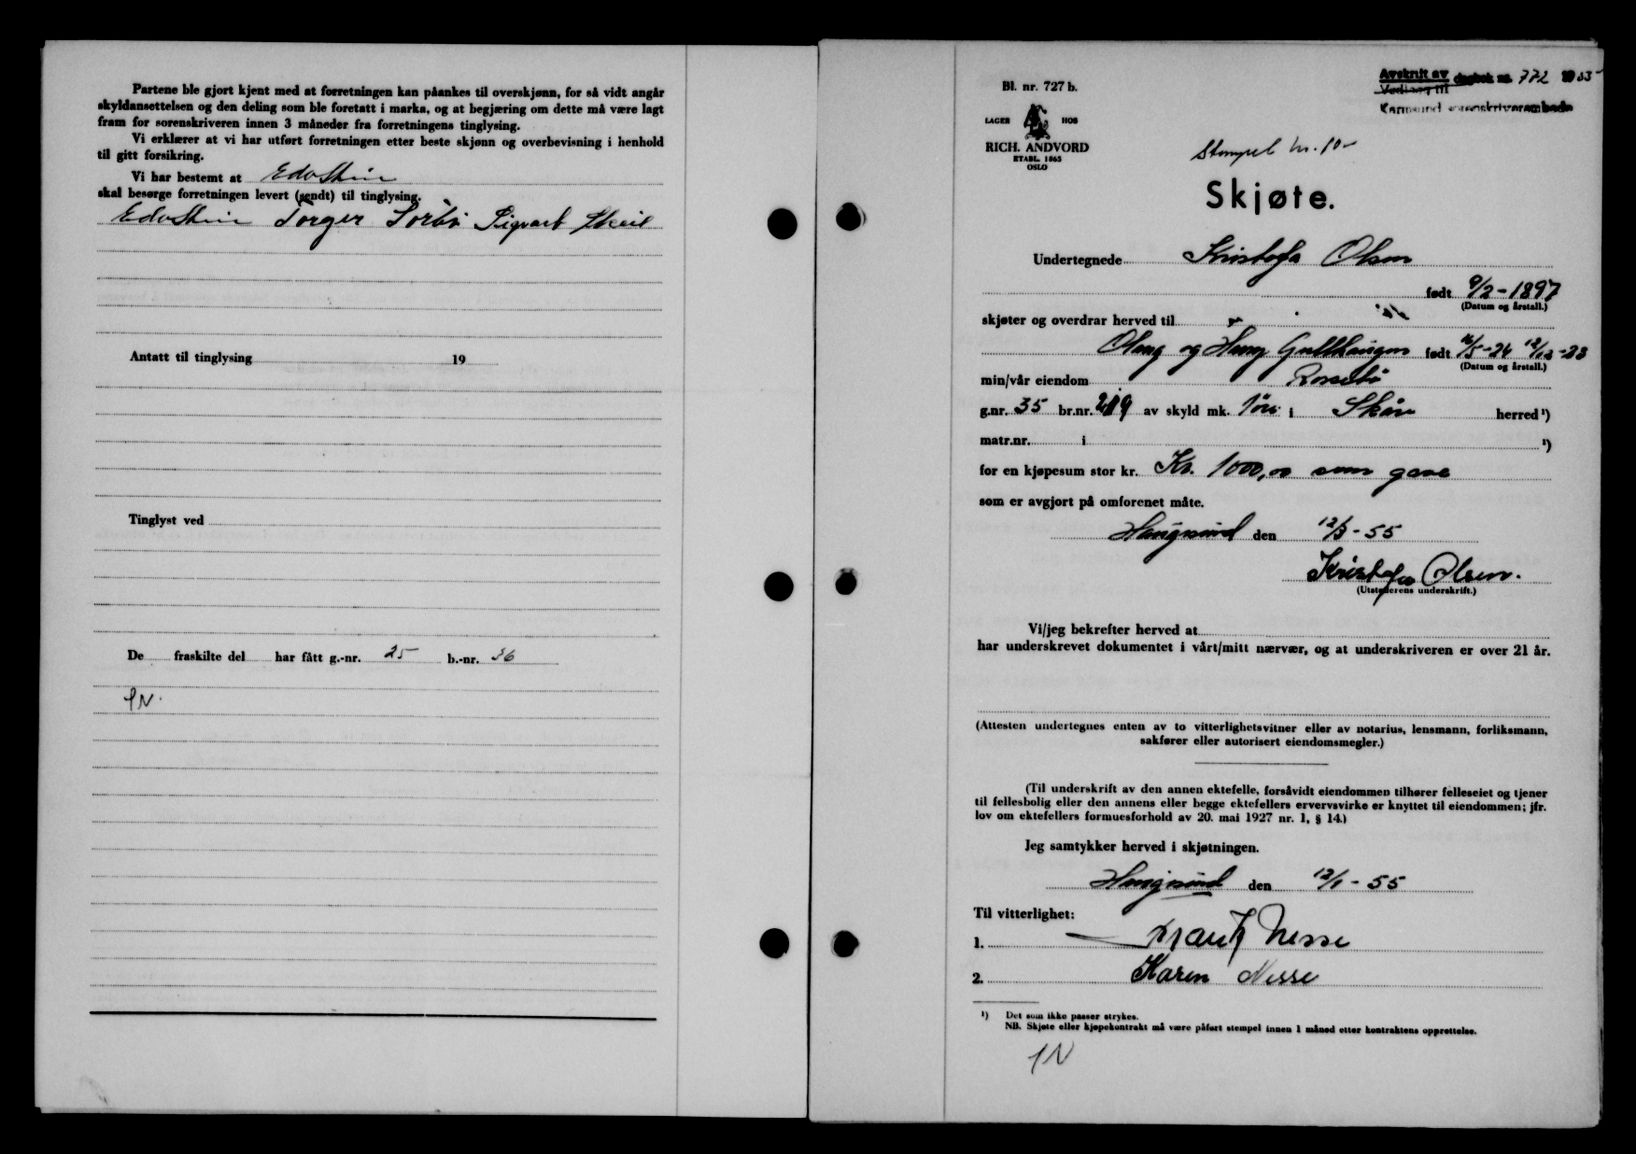 Partene ble gjort kjent med at forretningen kan påankes til overskjønn, for så vidt angår
skyldansettelsen og den deling som ble foretatt i marka, og at begjæring om dette må være lagt
fram for sorenskriveren innen 3 måneder fra forretningens tinglysing.
Vi erklærer at vi har utført forretningen etter beste skjønn og overbevisning i henhold
til gitt forsikring.
Vi har bestemt at
skal besørge forretningen levert (sendt) til tinglysing.
Torger Sørbø Sigvart
Antatt til tinglysing 19
Tinglyst ved
De fraskilte del har fått g.-nr. 25 b.-nr. 36
Bl. nr. 727 b.
LAGER HOS
RICH. ANDVORD
ETABL. 1865
OSLO
Avskrift av dagbok nr. 772 1955
Vedlegg til
Karmsund sorenskriverembede
Stempel kr. 10-
Skjøte.
Undertegnede Kristofa Olsen
født 9/2-1897
(Datum og årstall.)
skjøter og overdrar herved til
Olaug og Harry Gullhaugen født 16/5-24 12/12-23
(Datum og årstall.)
min/vår eiendom Rossebø
g.nr. 35 br.nr. 219 av skyld mk. 1 øre i Skåre herred ¹)
matr.nr. i ¹)
for en kjøpesum stor kr. Kr. 1000,00 som gave
som er avgjort på omforenet måte.
Haugesund den 12/3-55
Kristofa Olsen.
(Utstederens underskrift.)
Vi/jeg bekrefter herved at
har underskrevet dokumentet i vårt/mitt nærvær, og at underskriveren er over 21 år.
(Attesten undertegnes enten av to vitterlighetsvitner eller av notarius, lensmann, forliksmann,
sakfører eller autorisert eiendomsmegler.)
(Til underskrift av den annen ektefelle, forsåvidt eiendommen tilhører felleseiet og tjener
til fellesbolig eller den annens eller begge ektefellers ervervsvirke er knyttet til eiendommen; jfr.
lov om ektefellers formuesforhold av 20. mai 1927 nr. 1, § 14.)
Jeg samtykker herved i skjøtningen.
Haugesund den 12/1-55
Til vitterlighet:
1. Nesse
2. Karen Nesse
¹) Det som ikke passer strykes.
NB. Skjøte eller kjøpekontrakt må være påført stempel innen 1 måned etter kontraktens opprettelse.